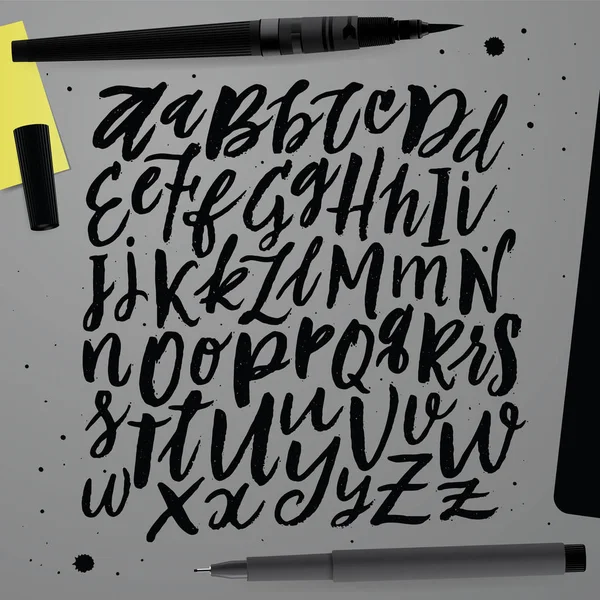 AaBbCcDd
EeFfGgHhIi
JjKkLlMmN
nOoPpQqRrS
sTtUuVvW
wXxYyZz